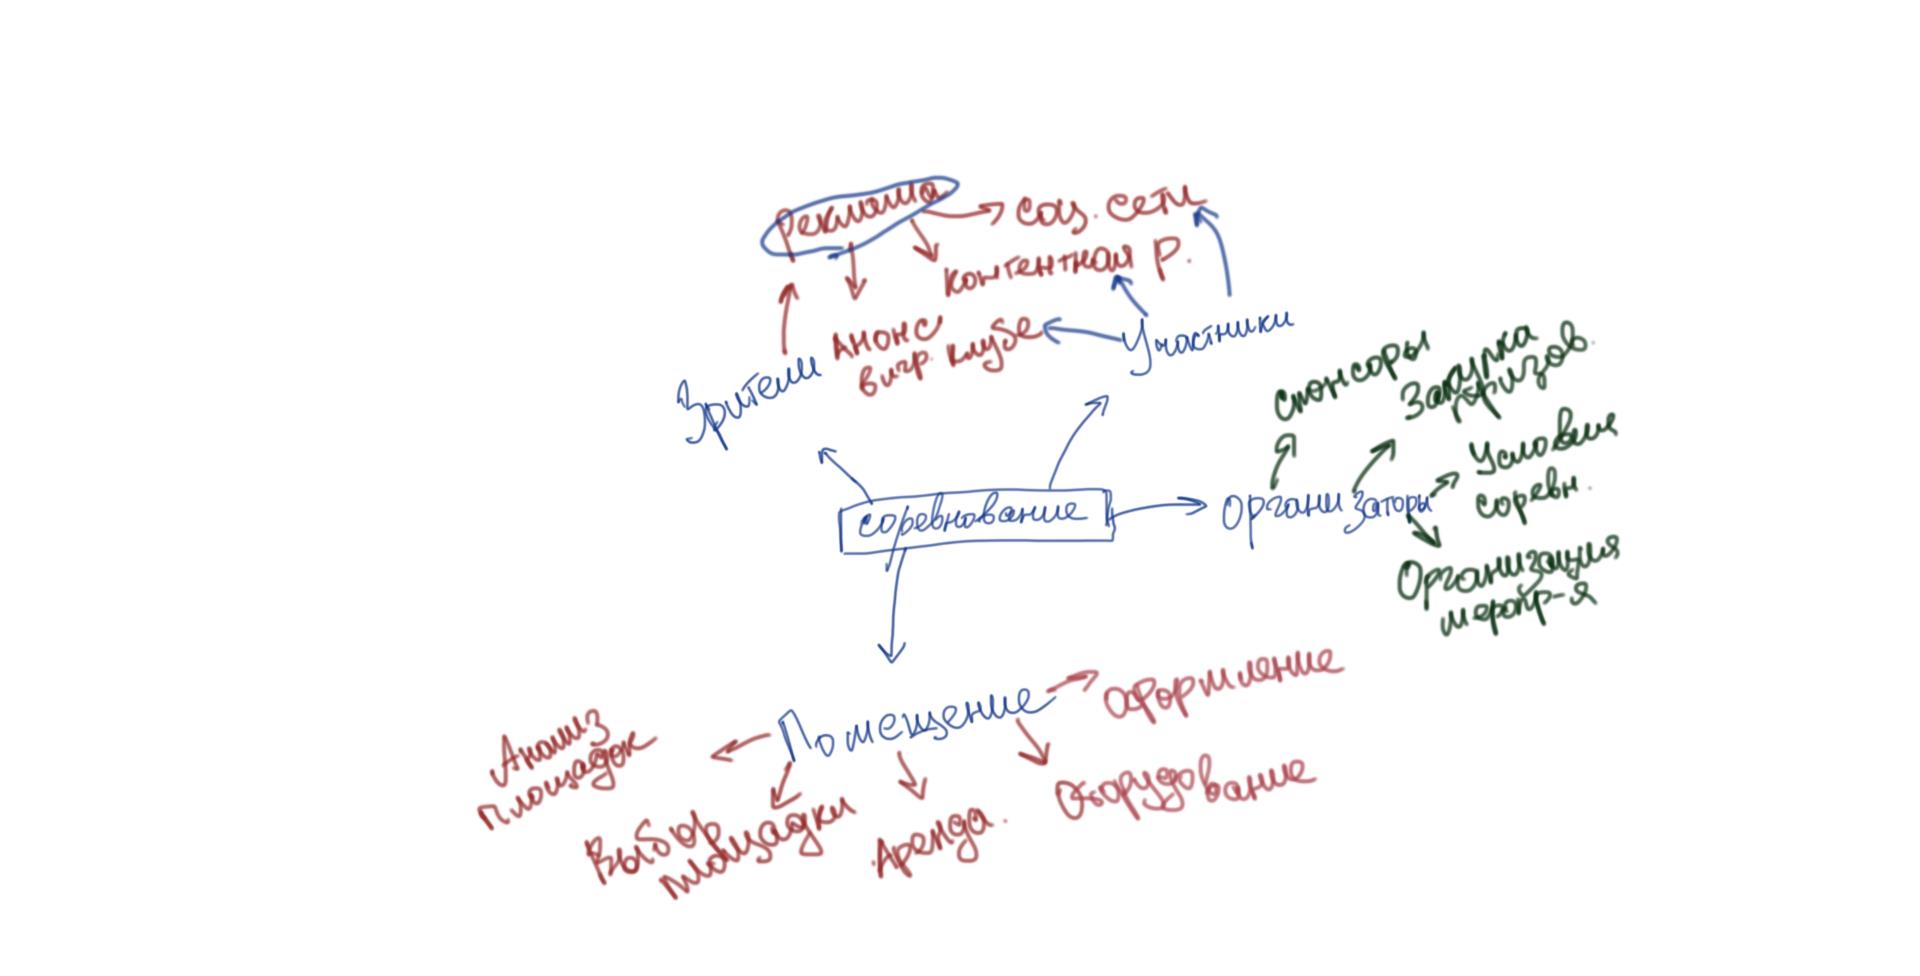 Реклама
соц. сети
контентная р.
Анонс
в игр. клубе
Участники
Зрители
спонсоры
Закупка
призов.
Условия
соревн.
соревнование
Организаторы
Организация
меропр-я
Помещение
Оформление
Анализ
площадок
Выбор
площадки
Аренда.
Оборудование